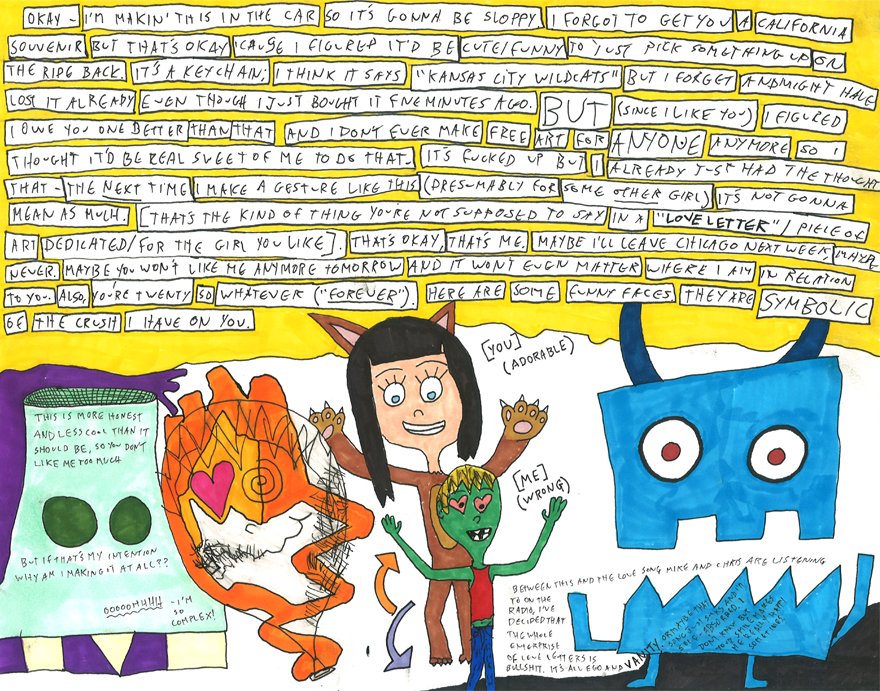 OKAY - I'M MAKIN' THIS IN THE CAR SO IT'S GONNA BE SLOPPY. I FORGOT TO GET YOU A CALIFORNIA
SOUVENIR BUT THAT'S OKAY 'CAUSE I FIGURED IT'D BE CUTE/FUNNY TO JUST PICK SOMETHING UP ON
THE RIDE BACK. IT'S A KEYCHAIN; I THINK IT SAYS "KANSAS CITY WILDCATS" BUT I FORGET AND MIGHT HAVE
LOST IT ALREADY EVEN THOUGH I JUST BOUGHT IT FIVE MINUTES AGO. BUT (SINCE I LIKE YOU) I FIGURED
I OWE YOU ONE BETTER THAN THAT AND I DON'T EVER MAKE FREE ART FOR ANYONE ANYMORE SO I
THOUGHT IT'D BE REAL SWEET OF ME TO DO THAT. IT'S FUCKED UP BUT I ALREADY JUST HAD THE THOUGHT
THAT - THE NEXT TIME I MAKE A GESTURE LIKE THIS (PRESUMABLY FOR SOME OTHER GIRL) IT'S NOT GONNA
MEAN AS MUCH. [THAT'S THE KIND OF THING YOU'RE NOT SUPPOSED TO SAY IN A "LOVE LETTER" / PIECE OF
ART DEDICATED/FOR THE GIRL YOU LIKE]. THAT'S OKAY, THAT'S ME. MAYBE I'LL LEAVE CHICAGO NEXT WEEK, MAYBE
NEVER. MAYBE YOU WON'T LIKE ME ANYMORE TOMORROW AND IT WON'T EVEN MATTER WHERE I AM IN RELATION
TO YOU. ALSO, YOU'RE TWENTY SO WHATEVER ("FOREVER"). HERE ARE SOME FUNNY FACES. THEY ARE SYMBOLIC
OF THE CRUSH I HAVE ON YOU.
[YOU]
(ADORABLE)
THIS IS MORE HONEST
AND LESS COOL THAN IT
SHOULD BE, SO YOU DON'T
LIKE ME TOO MUCH
BUT IF THAT'S MY INTENTION
WHY AM I MAKING IT AT ALL??
OOOOOHUHH - I'M
SO
COMPLEX!
[ME]
(WRONG)
BETWEEN THIS AND THE LOVE SONG MIKE AND CHRIS ARE LISTENING
TO ON THE
RADIO, I'VE
DECIDED THAT
THE WHOLE
ENTERPRISE
OF LOVE LETTERS IS
BULLSHIT. IT'S ALL EGO AND VANITY